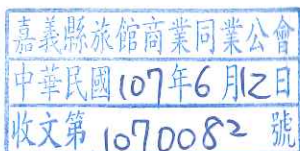 嘉義縣旅館商業同業公會
中華民國107年6月12日
收文第1070082號